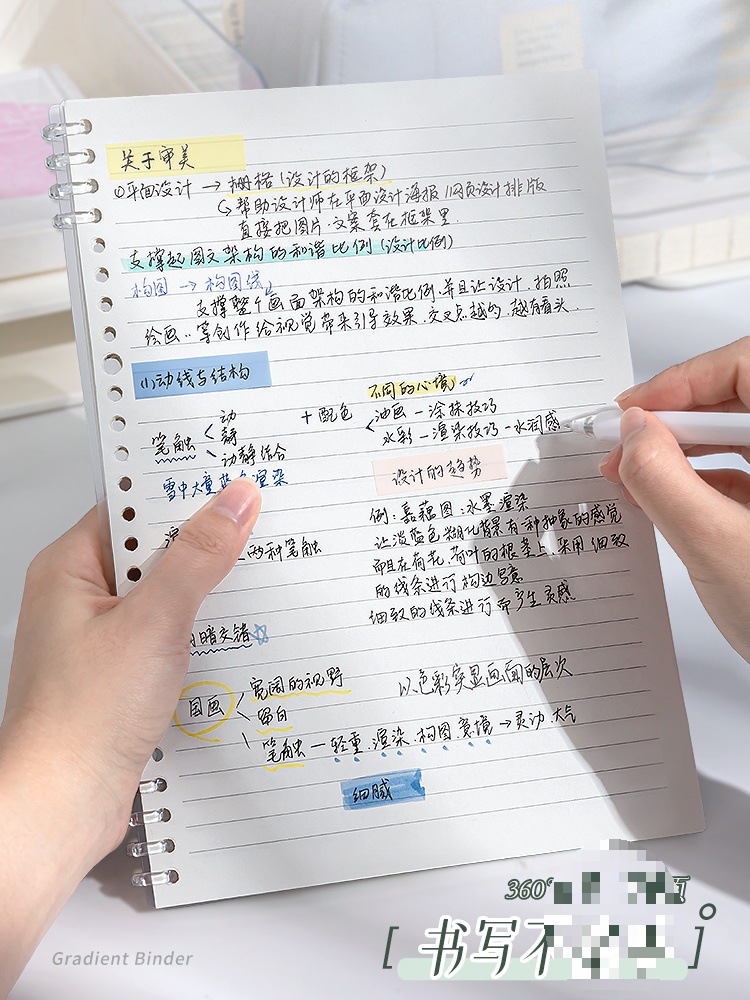 关于审美
①平面设计 → 栅格（设计的框架）
↳ 帮助设计师在平面设计海报 网页设计排版
直接把图片.文案套在框架里.
支撑起图文架构的和谐比例（设计比例）
构图 → 构图线
支撑整个画面架构的和谐比例.并且让设计.拍照
绘画..等创作给视觉带来引导效果.交叉点越多.越有看头.
(1)动线与结构
不同的心境
动 + 配色 油画 - 涂抹技巧
笔触 < 静 水彩 - 渲染技巧 - 水润感
动静结合
雪中大量蓝 渲染
设计的趋势
例:嘉藕图:水墨渲染
让淡蓝色糊化背景有一种抽象的感觉
两种笔触
而且在荷花.荷叶的根茎上.采用细致
的线条进行构边
细致的线条进行而产生灵感
暗交错☆
国画 < 宽阔的视野
以色彩突显画面的层次
留白
笔触 - 轻重.渲染.构图.意境 → 灵动.大气
细腻
360°
[书写不 ]
Gradient Binder